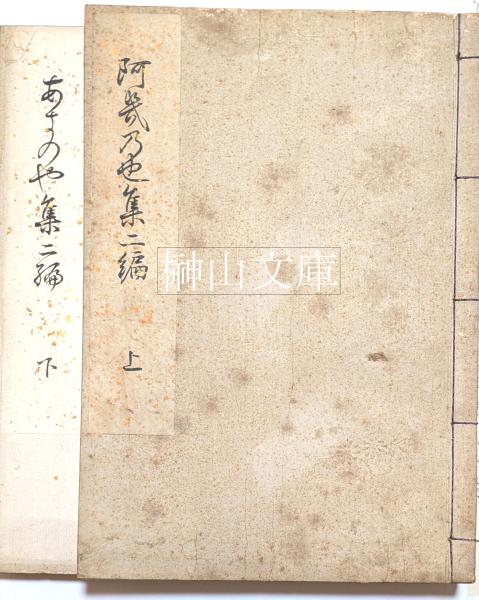 阿幾乃也集二編 上
榊山文庫
あきのや集二編 下